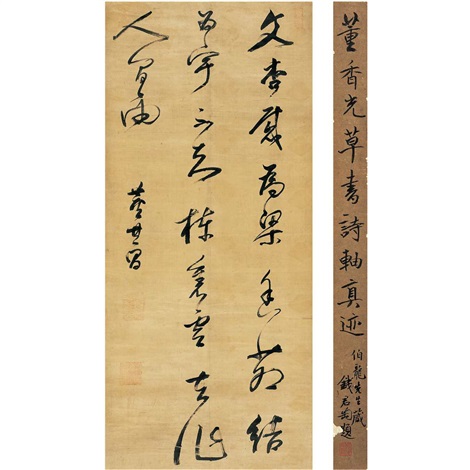 董香光草書詩軸真迹
伯龍先生藏
錢君匋題
文杏裁為梁香茅結
為宇不知棟裏雲去作
人間雨
董其昌